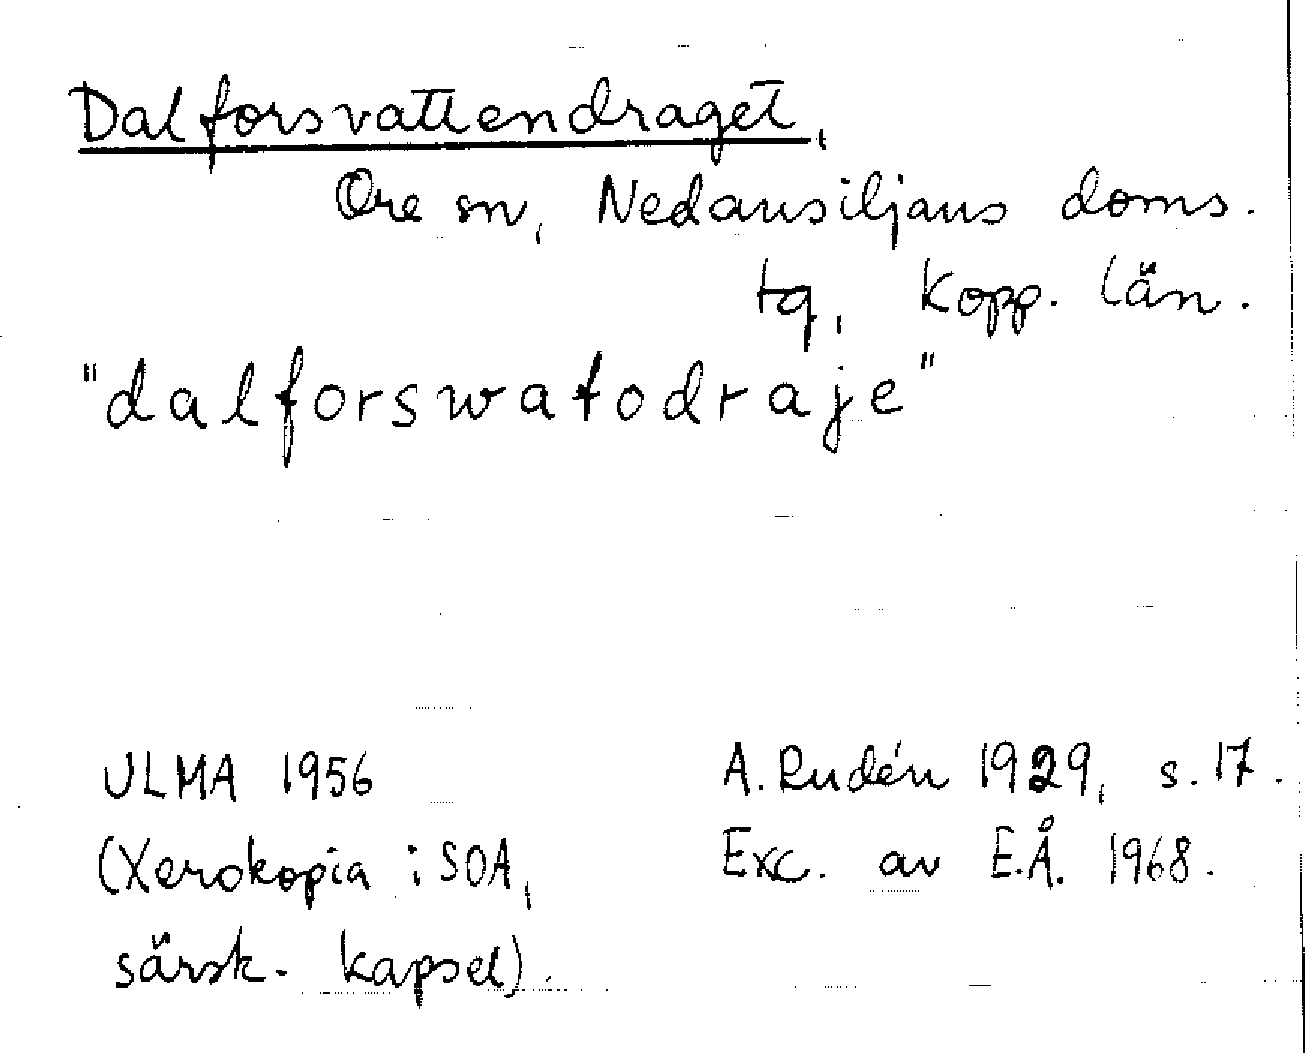 Dalforsvattendraget,
Ore sn, Nedansiljans doms.
tg, Kopp. län.
"dalforswatodraje"
ULMA 1956
(Xerokopia i SOA,
särsk. kapsel).
A. Rudén 1929, s. 17.
Exc. av E.Å. 1968.